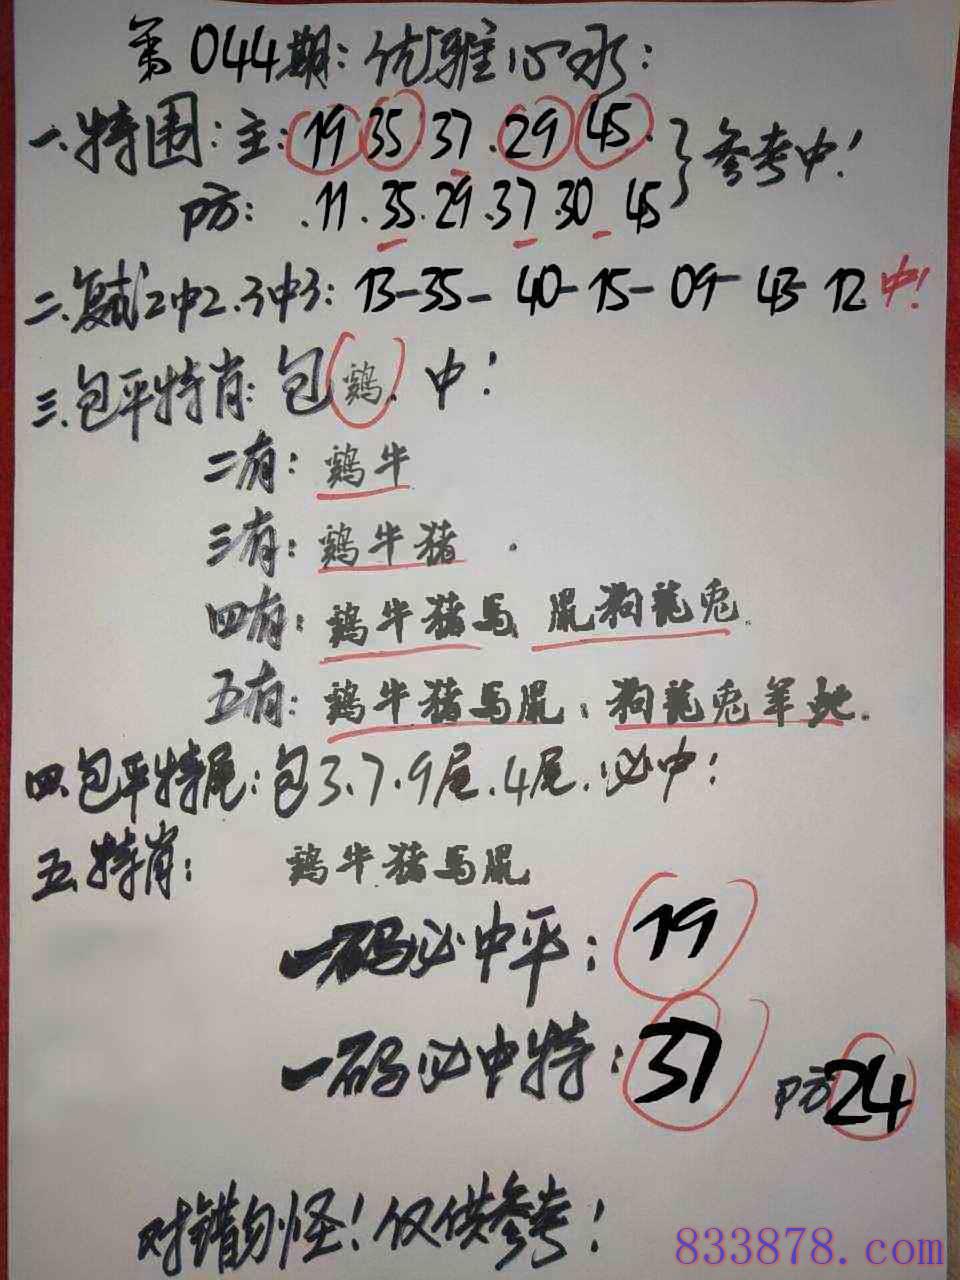 第044期:优雅心水:
一.特围:主:19 35.37.29 45.
防:.11.35.29.37.30 45 } 参考中!
二.复式2中2.3中3:13-35-40-15-09-43-12 中!
三.包平特肖:包鷄.中!
二有:鷄牛
三有:鷄牛猪.
四有:鷄牛猪馬 鼠狗龍兎.
五有:鷄牛猪馬鼠:狗龍兎羊蛇.
四.包平特尾:包3.7.9尾.4尾.必中!
五.特肖:鷄牛.猪馬鼠
一码必中平:19
一码必中特:37 防24
对错勿怪!仅供参考!
833878.com